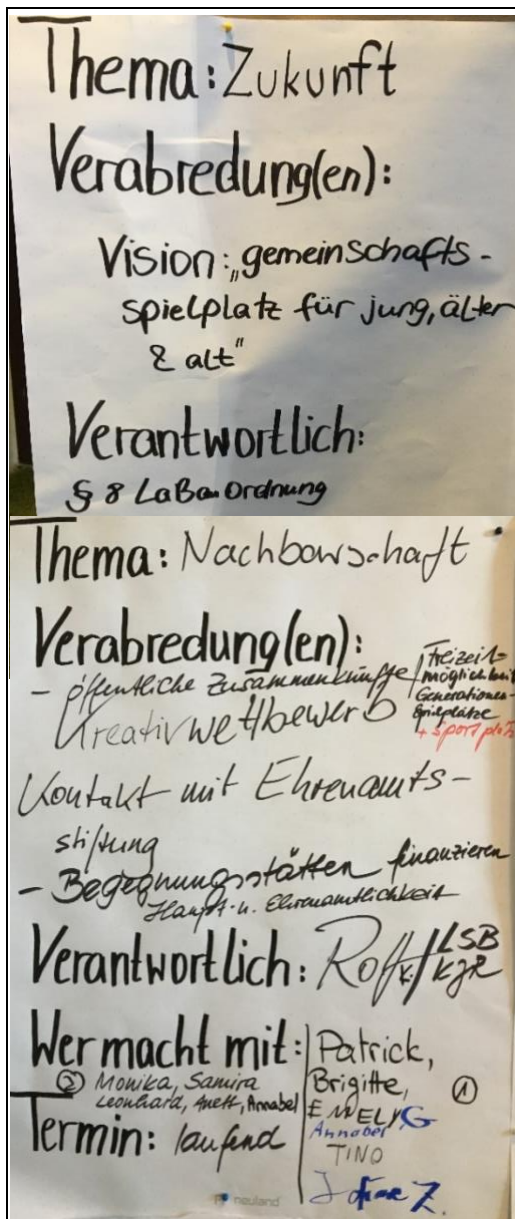 Thema: Zukunft
Verabredung(en):
Vision: „gemeinschafts-
spielplatz für jung, älter
& alt"
Verantwortlich:
§ 8 LaBauOrdnung
Thema: Nachbarschaft
Verabredung(en):
- öffentliche Zusammenkünfte /
Kreativwettbewerb
Freizeit-
möglichkeit
Generationen-
spielplätze
+ Sportplatz
Kontakt mit Ehrenamts-
stiftung
- Begegnungsstätten finanzieren
Haupt- u. Ehrenamtlichkeit
Verantwortlich: Rolf K. / LSB
KJR
Wer macht mit:
② Monika, Samira
Leonhard, Anett, Annabel
Patrick,
Brigitte,
①
Annabel
TINO
Termin: laufend
neuland